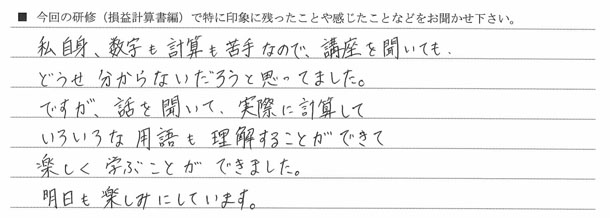 ■ 今回の研修（損益計算書編）で特に印象に残ったことや感じたことなどをお聞かせ下さい。
私自身、数字も計算も苦手なので、講座を聞いても、
どうせ分からないだろうと思ってました。
ですが、話を聞いて、実際に計算して
いろいろな用語も理解することができて
楽しく学ぶことができました。
明日も楽しみにしています。